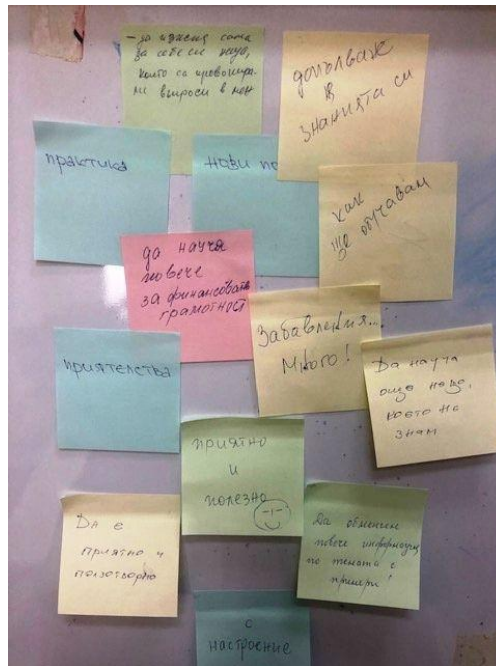 - да изясня сама
за себе си неща,
които са провокира-
ли въпроси в мен
допълване
знанията си
практика
нови по
как
ще обучавам
да науча
повече
за финансовата
грамотност
Забавления...
Много!
приятелства
Да науча
още нещо,
което не
знам
приятно
и
полезно
Да е
приятно и
ползотворно
Да обменим
повече информация
по темата с
примери!
с
настроение